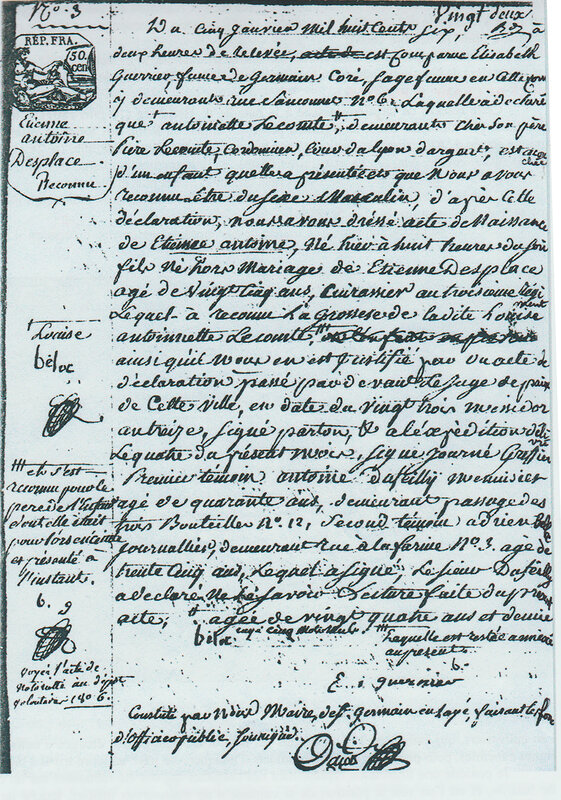 N.º 3
Vingt deux
RÉP. FRA.
50. cen
Etienne
antoine
Desplace
Reconnu
Du Cinq Janvier Mil huit Cent Six, à
deux heures de relevée, acte de est Comparue Elisabeth
Guernier, femme de Germain Coré, sage femme en Cette
y demeurant rue N.º 6. Laquelle a déclaré
que antoinette Lecomte demeurante chez son père
Pière Lecomte, Cordonnier, Cour du Lyon d'argent, est
d'un enfant quelle a présenté et que Nous avons
reconnu être du sexe Masculin, d'après Cette
déclaration, nous avons dressé acte de Naissance
de Etienne antoine, Né hier à huit heures du soir
fils Né hors Mariage de Etienne Desplace
agé de vingt Cinq ans, Cuirassier au troisieme régi
ment
Lequel a reconnu La grossesse de Ladite Louise
antoinette Lecomte,
ainsi qu'il Nous en est Justifié par un acte de
déclaration passé par devant Le Juge de paix
de Cette ville, en date du vingt trois Messidor
an treize, signé parton, & a l'expédition
Le quatre du présent Mois, signé
Premier témoin antoine Dufeilly Menuisier
agé de quarante ans, demeurant passage des
trois Bouteilles N.º 12, Second témoin adrien
Journallier, demeurant rue à la farine N.º 3. agé de
trente Cinq ans, Lequel a signé, Le sieur Dufeilly
a déclaré Ne le savoir Lecture faite du présent
acte, agée de vingt quatre ans et demie
béloc rayé Cinq Mots Nuls.
Laquelle est restée annexée
au présent
b.
E. guernier
Constaté par Nous Maire, de St. germain en Laye, faisant les fon
d'Officier public, soussigné.
David
Louise
béloc
et s'est
reconnu pour le
pere de L'enfant
dont elle était
pour lors enceinte
et présenté à
l'instant.
b. g
Voyez l'acte de
Notoriété au dépot
1806.